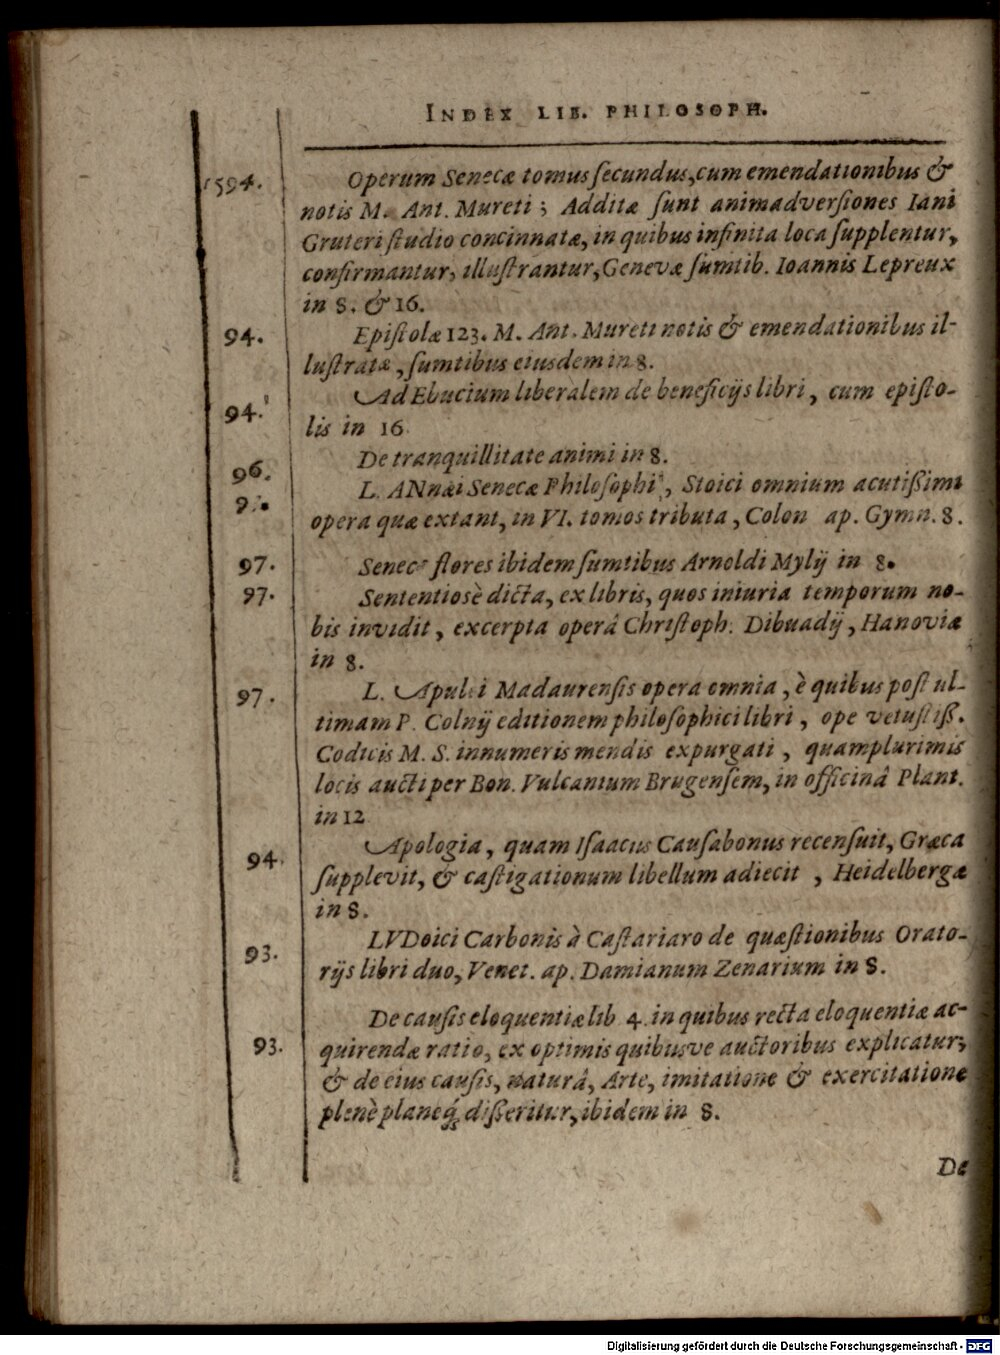 INDEX LIB. PHILOSOPH.
1594. Operum Senecæ tomus ſecundus, cum emendationibus &
notis M. Ant. Mureti; Additæ ſunt animadverſiones Iani
Gruteri ſtudio concinnatæ, in quibus infinita loca ſupplentur,
confirmantur, illuſtrantur, Genevæ ſumtib. Ioannis Lepreux
in 8. & 16.
94. Epiſtolæ 123. M. Ant. Mureti notis & emendationibus il-
luſtratæ, ſumtibus eiusdem in 8.
94. Ad Ebucium liberalem de beneficijs libri, cum epiſto-
lis in 16
96. De tranquillitate animi in 8.
L. ANnæi Senecæ Philoſophi, Stoici omnium acutißimi
opera quæ extant, in VI. tomos tributa, Colon ap. Gymn. 8.
97. Senecæ flores ibidem ſumtibus Arnoldi Mylij in 8.
97. Sententiosè dicta, ex libris, quos iniuria temporum no-
bis invidit, excerpta operâ Chriſtoph. Dibuadij, Hanoviæ
in 8.
97. L. Apulei Madaurenſis opera omnia, è quibus poſt ul-
timam P. Colnij editionem philoſophici libri, ope vetuſtiß.
Codicis M. S. innumeris mendis expurgati, quamplurimis
locis aucti per Bon. Vulcanium Brugenſem, in officinâ Plant.
in 12
94. Apologia, quam Iſaacus Cauſabonus recenſuit, Græca
ſupplevit, & caſtigationum libellum adiecit, Heidelbergæ
in 8.
93. LVDoici Carbonis à Caſtariaro de quæſtionibus Orato-
rijs libri duo, Venet. ap. Damianum Zenarium in 8.
93. De cauſis eloquentiæ lib 4. in quibus recta eloquentiæ ac-
quirendæ ratio, ex optimis quibusve auctoribus explicatur,
& de eius cauſis, naturâ, Arte, imitatione & exercitatione
plenè planeq́; dißeritur, ibidem in 8.
De
Digitalisierung gefördert durch die Deutsche Forschungsgemeinschaft - DFG